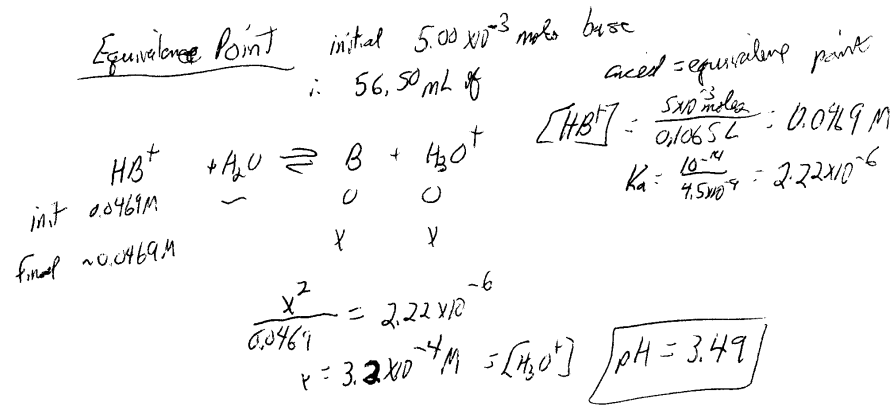 Equivalence Point initial 5.00 x10^-3 moles base
∴ 56.50 mL of acid = equivalence point
[HB+] = 5x10^-3 moles / 0.1065 L = 0.0469 M
HB+ + H2O ⇌ B + H3O+
Ka = 10^-14 / 4.5x10^-9 = 2.22x10^-6
init 0.0469M – 0 0
final ~0.0469M x x
x^2 / 0.0469 = 2.22 x10^-6
x = 3.2 x10^-4 M = [H3O+]
pH = 3.49